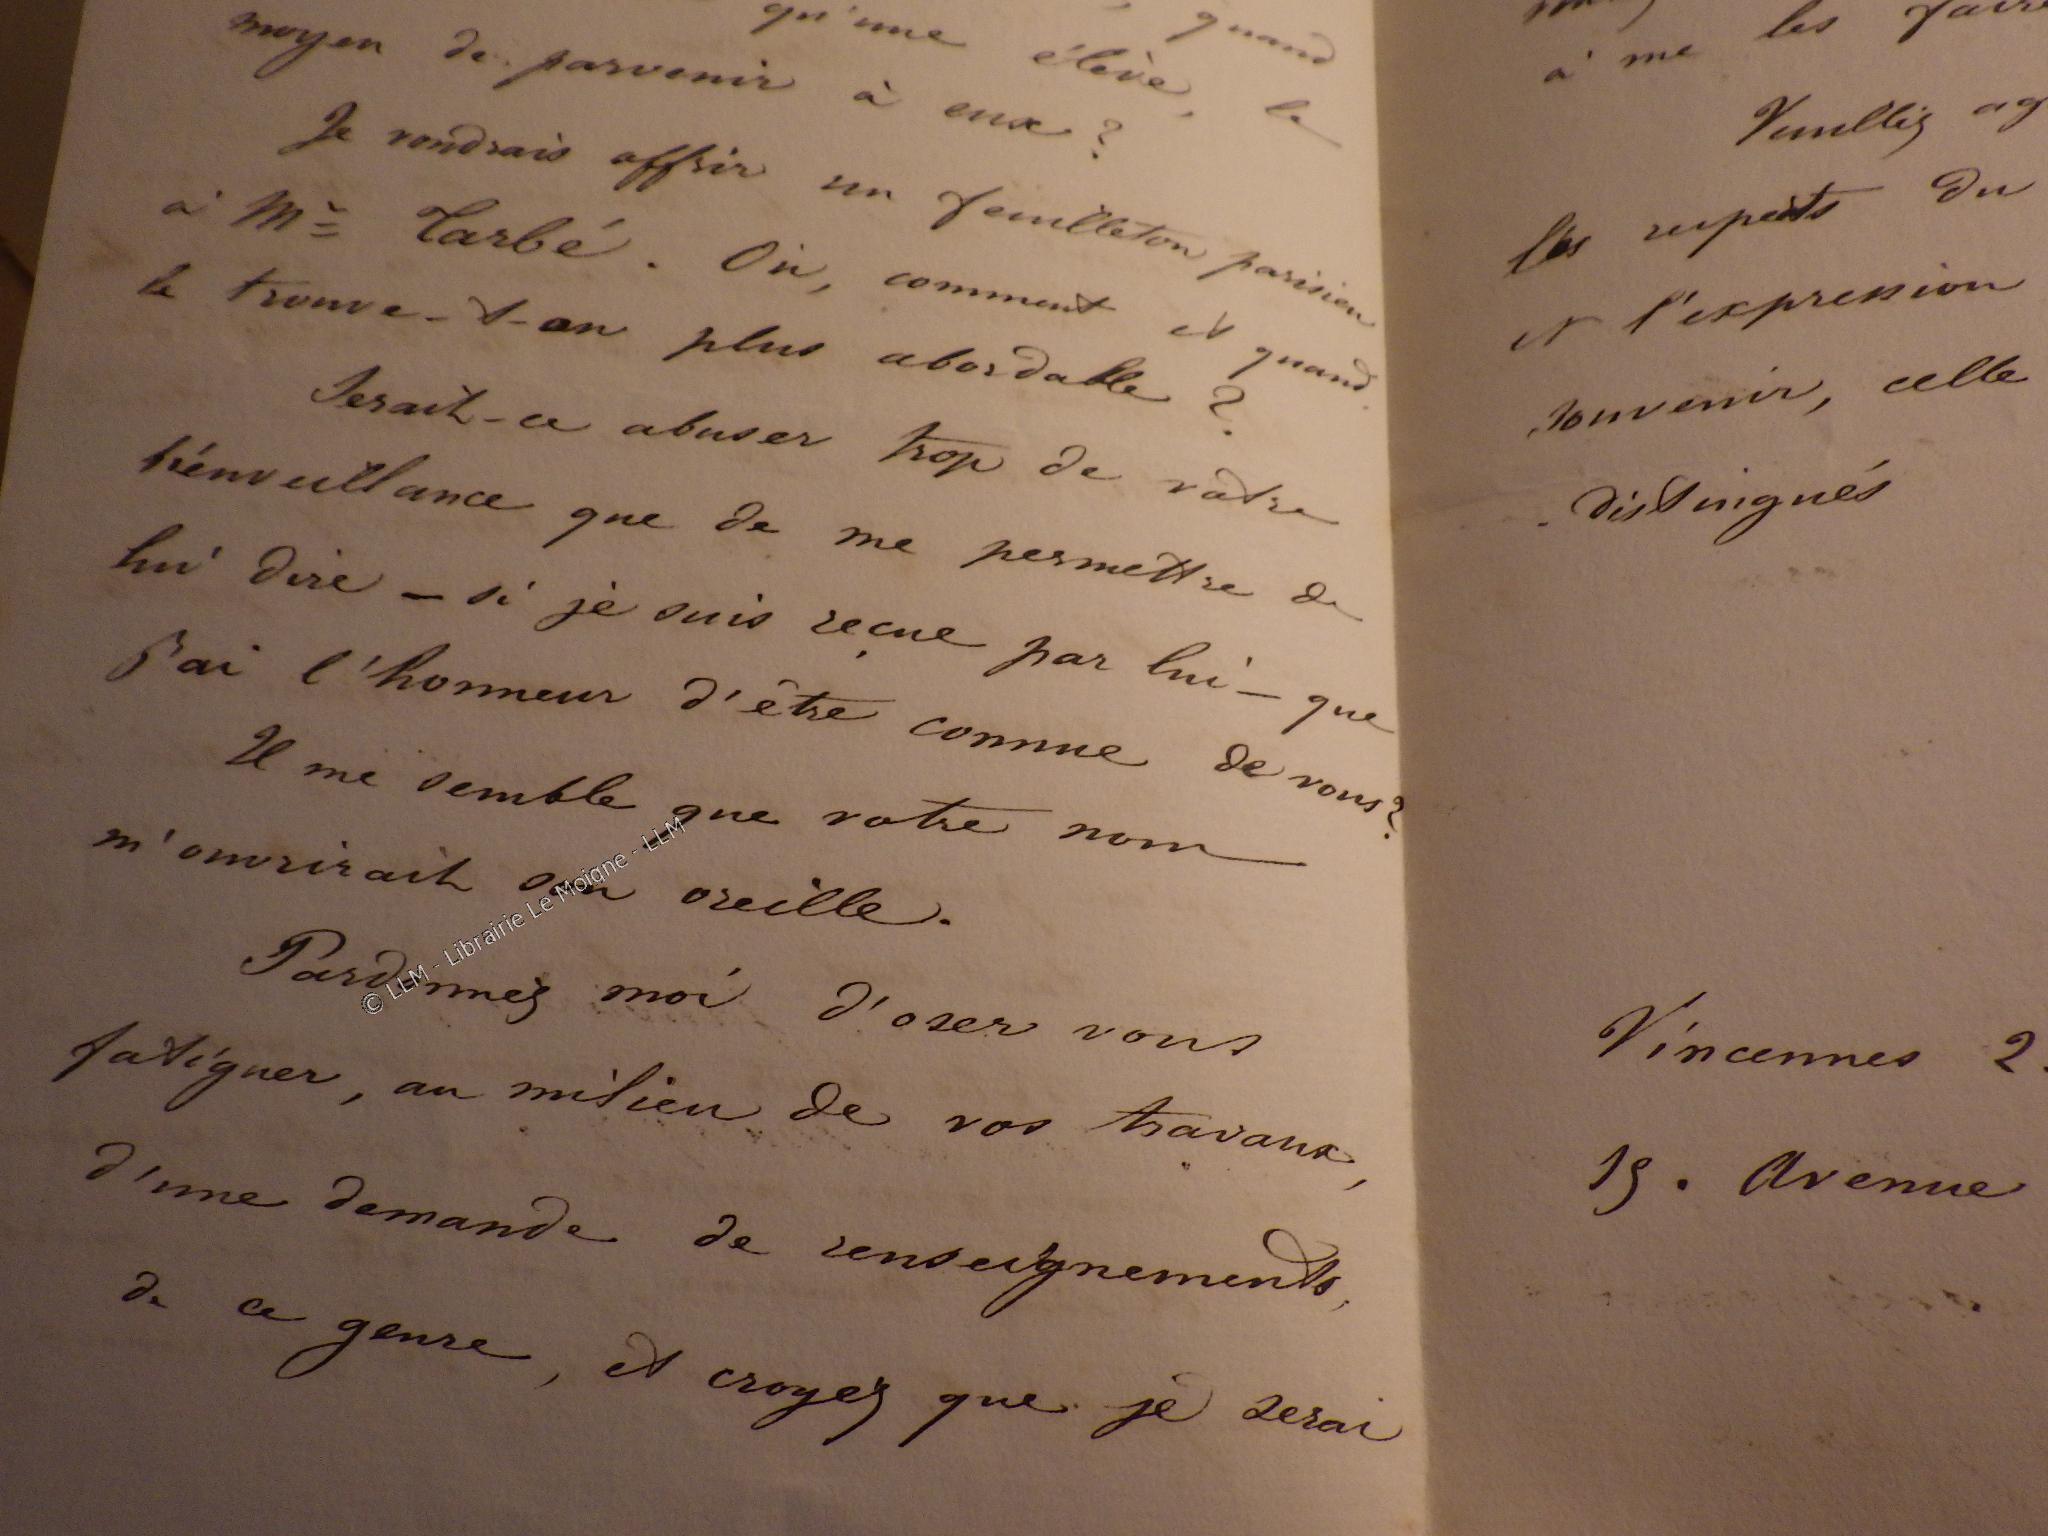 quand
qu'une élève, le
moyen de parvenir à eux ?
Je voudrais offrir un feuilleton parisien
à Mr Tarbé. Où, comment et quand
le trouve-t-on plus abordable ?
Serait-ce abuser trop de votre
bienveillance que de me permettre de
lui dire – si je suis reçue par lui – que
j'ai l'honneur d'être connue de vous ?
Il me semble que votre nom
m'ouvrirait son oreille.
Pardonnez moi d'oser vous
fatiguer, au milieu de vos travaux,
d'une demande de renseignements,
de ce genre, et croyez que je serai
à me les faire
Veuillez ag
les respects du
et l'expression
souvenir, celle
distingués
Vincennes 2
15. Avenue
© LLM - Librairie Le Moigne - LLM